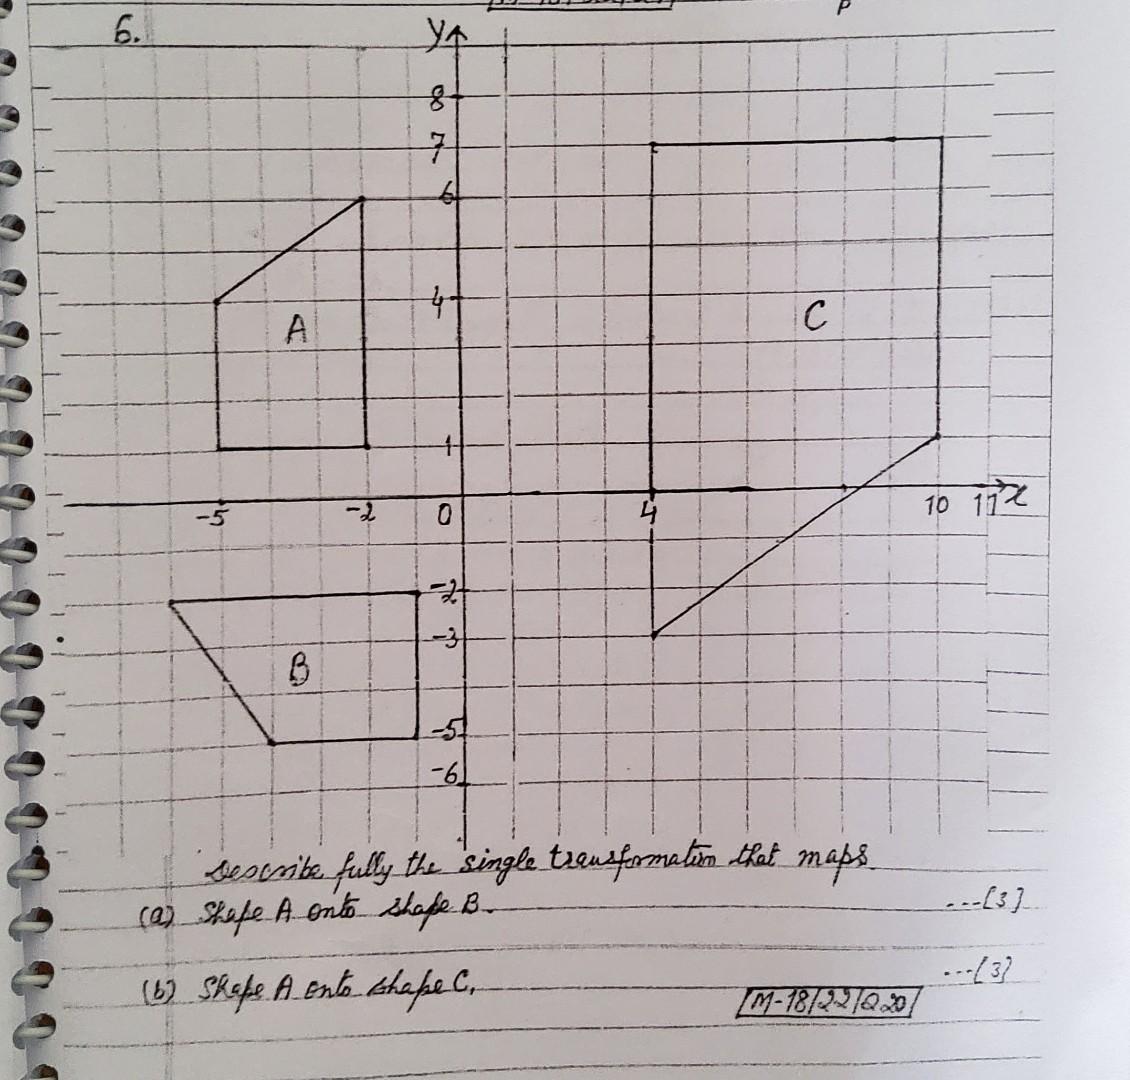 6.
y
8
7
6
4
A
C
1
-5
-2
0
4
10
11
x
-2
-3
B
-5
-6
Describe fully the single transformation that maps
(a) Shape A onto shape B. ---[3]
(b) Shape A onto shape C. ---[3]
M-18/22/Q.20